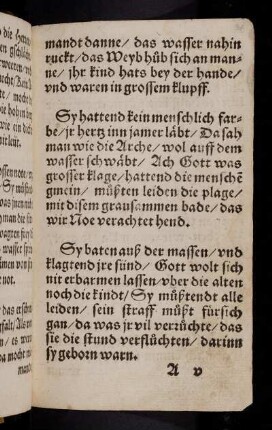 mandt danne/ das wasser nahin
ruckt/ das Weyb hůb sich an man-
ne/ jhr kind hats bey der hande/
vnd waren in grossem klupff.
Sy hattend kein menschlich far-
be/ jr hertz inn jamer läbt/ Da sah
man wie die Arche/ wol auff dem
wasser schwäbt/ Ach Gott was
grosser klage/ hattend die menschē
gmein/ müßten leiden die plage/
mit disem grausammen bade/ das
wir Noe verachtet hend.
Sy baten auß der massen/ vnd
klagtend jre sünd/ Gott wolt sich
nit erbarmen lassen/ vber die alten
noch die kindt/ Sy müßtendt alle
leiden/ sein straff müßt fürsich
gan/ da was jr vil verrůchte/ das
sie die stund verflůchten/ darinn
sy geborn warn.
A v